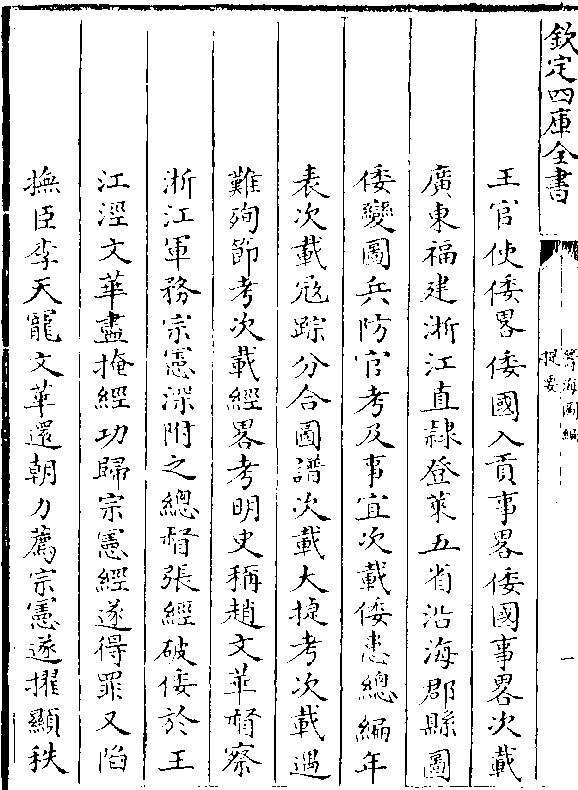 欽定四庫全書
籌海圖編
提要
一
王官使倭畧倭國入貢事畧倭國事畧次載
廣東福建浙江直隷登萊五省沿海郡縣圖
倭變圖兵防官考及事宜次載倭患總編年
表次載冦踪分合圖譜次載大捷考次載遇
難殉節考次載經畧考明史稱趙文華督察
浙江軍務宗憲深附之總督張經破倭於王
江涇文華盡掩經功歸宗憲經遂得罪又陷
撫臣李天寵文華還朝力薦宗憲遂擢顯秩